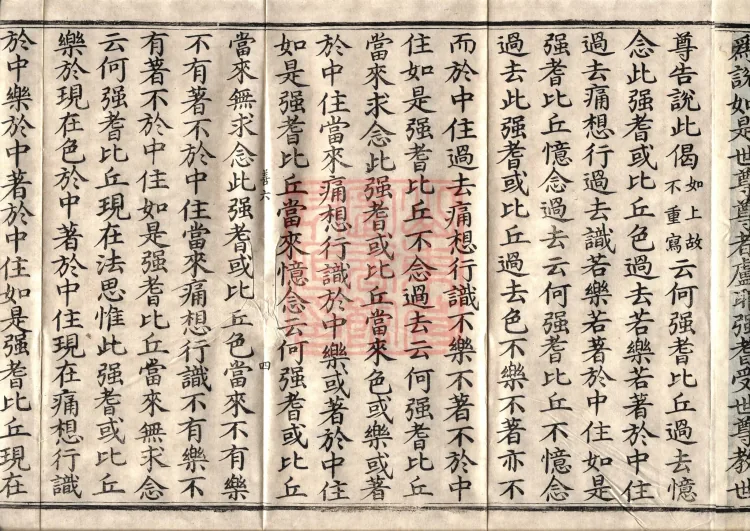 爲說如是世尊尊者盧耶强耆受世尊教世
尊告說此偈如上故不重寫云何强耆比丘過去憶
念此强耆或比丘色過去若樂若著於中住
過去痛想行過去識若樂若著於中住如是
强耆比丘憶念過去云何强耆比丘不憶念
過去此强耆或比丘過去色不樂不著亦不
而於中住過去痛想行識不樂不著不於中
住如是强耆比丘不念過去云何强耆比丘
當來求念此强耆或比丘當來色或樂或著
於中住當來痛想行識於中樂或著於中住
如是强耆比丘當來憶念云何强耆或比丘
善六 四
當來無求念此强耆或比丘色當來不有樂
不有著不於中住當來痛想行識不有樂不
有著不於中住如是强耆比丘當來無求念
云何强耆比丘現在法思惟此强耆或比丘
樂於現在色於中著於中住現在痛想行識
於中樂於中著於中住如是强耆比丘現在